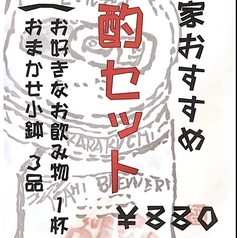 家おすすめ
酌セット
¥880
お好きなお飲み物 1杯
おまかせ小鉢 3品
KARAKUCHI